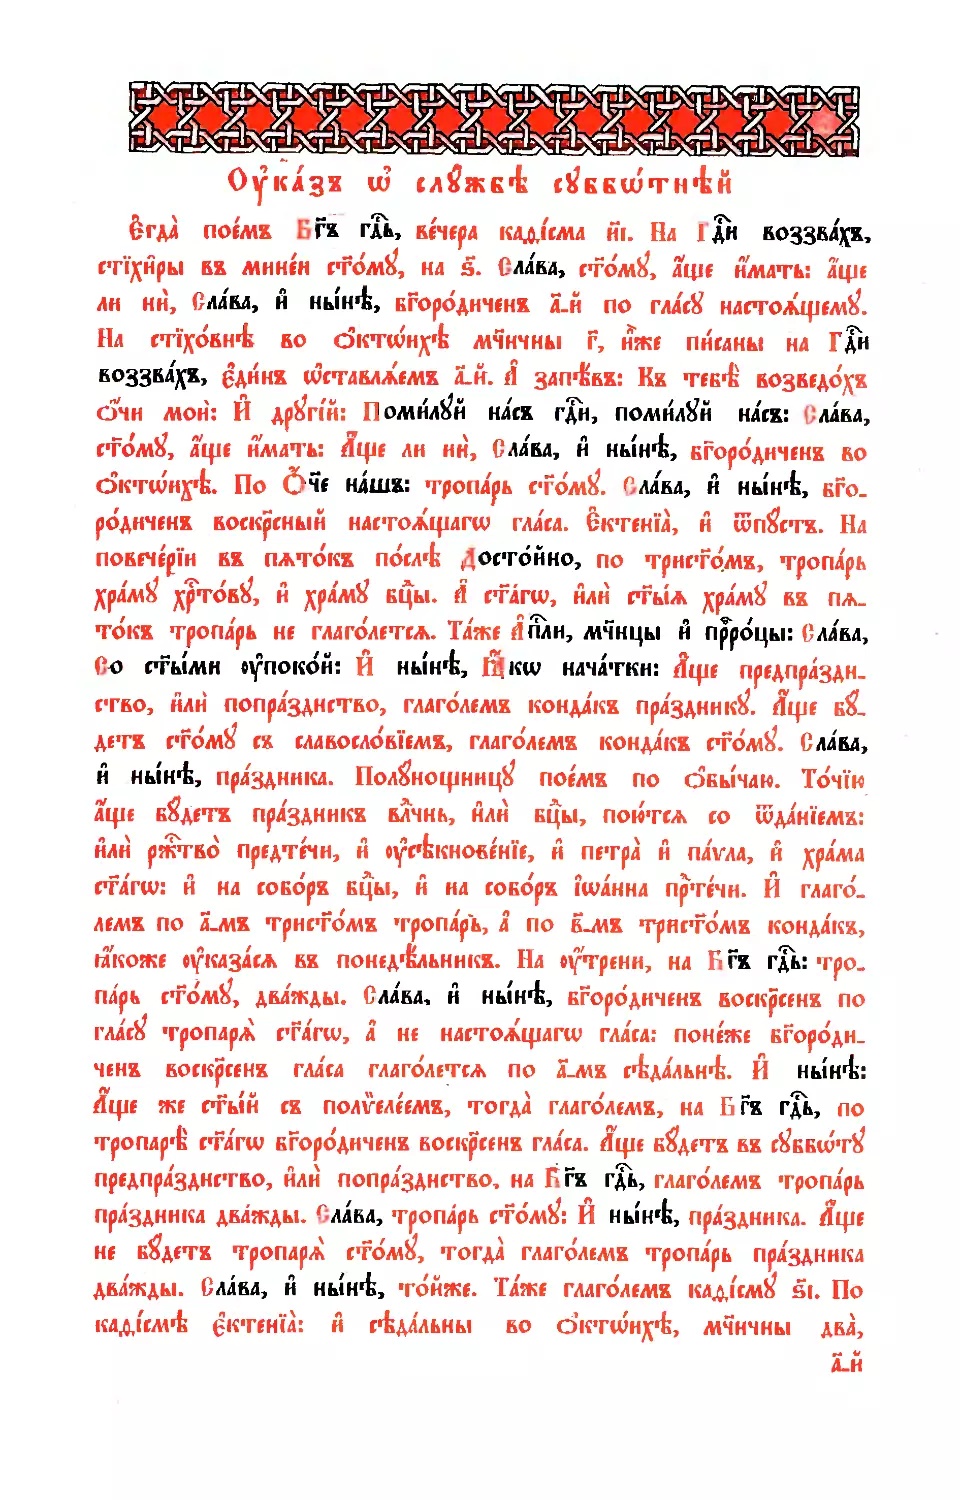 Оу҆ка́зъ ѡ҆ слꙋ́жбѣ сꙋббѡ́тнѣй
Е҆гда̀ пое́мъ Бг҃ъ гдⷭ҇ь, ве́чера каѳі́сма и҃і. На Гдⷭ҇и воззва́хъ,
стїхи̑ры въ мине́и ст҃о́мꙋ, на ѕ҃. Сла́ва, ст҃о́мꙋ, а҆́ще и҆́мать: а҆́ще
ли нѝ, Сла́ва, и҆ ны́нѣ, бг҃оро́диченъ а҃-й по гла́сꙋ настоѧ́щемꙋ.
На стїхо́внѣ во ѻ҆ктѡ́ихѣ мч҃нчны г҃, и҆̀же пи́саны на Гдⷭ҇и
воззва́хъ, є҆ди́нъ ѡ҆ставлѧ́емъ а҃-й. А҆ запѣ́въ: Къ тебѣ̀ возведо́хъ
ѻ҆́чи моѝ: И҆ дрꙋгі́й: Поми́лꙋй на́съ гдⷭ҇и, поми́лꙋй на́съ: Сла́ва,
ст҃о́мꙋ, а҆́ще и҆́мать: А҆́ще ли нѝ, Сла́ва, и҆ ны́нѣ, бг҃оро́диченъ во
ѻ҆ктѡ́ихѣ. По Ѻ҆́ч҃е на́шъ: тропа́рь ст҃о́мꙋ. Сла́ва, и҆ ны́нѣ, бг҃о-
ро́диченъ воскрⷭ҇ный настоѧ́щагѡ гла́са. Е҆ктенїа̀, и҆ ѿпꙋ́стъ. На
повече́рїи въ пѧто́къ по́слѣ Досто́йно, по трист҃о́мъ, тропа́рь
хра́мꙋ хрⷭ҇то́вꙋ, и҆ хра́мꙋ бцⷣы. А҆ ст҃а́гѡ, и҆лѝ ст҃ы́ѧ хра́мꙋ въ пѧ-
то́къ тропа́рь не глаго́летсѧ. Та́же А҆пⷭ҇ли, мч҃нцы и҆ прⷪ҇ро́цы: Сла́ва,
Со ст҃ы́ми ᲂу҆поко́й: И҆ ны́нѣ, Ꙗ҆́кѡ нача́тки: А҆́ще предпра́здн-
ство, и҆лѝ попра́зднство, глаго́лемъ конда́къ пра́здникꙋ. А҆́ще бꙋ́-
детъ ст҃о́мꙋ съ славосло́вїемъ, глаго́лемъ конда́къ ст҃о́мꙋ. Сла́ва,
и҆ ны́нѣ, пра́здника. Полꙋ́нощницꙋ пое́мъ по ѻ҆бы́чаю. То́чїю
а҆́ще бꙋ́детъ пра́здникъ влⷣчнь, и҆лѝ бцⷣы, пою́тсѧ со ѿда́нїемъ:
и҆лѝ ржⷭ҇тво̀ предте́чи, и҆ ᲂу҆сѣкнове́нїе, и҆ петра̀ и҆ па́ѵла, и҆ хра́ма
ст҃а́гѡ: и҆ на собо́ръ бцⷣы, и҆ на собо́ръ і҆ѡа́нна прⷣте́чи. И҆ глаго́-
лемъ по а҃-мъ трист҃о́мъ тропа́рь, а҆ по в҃-мъ трист҃о́мъ конда́къ,
ꙗ҆́коже ᲂу҆каза́сѧ въ понедѣ́льникъ. На ᲂу҆́трени, на Бг҃ъ гдⷭ҇ь: тро-
па́рь ст҃о́мꙋ, два́жды. Сла́ва, и҆ ны́нѣ, бг҃оро́диченъ воскрⷭ҇енъ по
гла́сꙋ тропарѧ̀ ст҃а́гѡ, а҆ не настоѧ́щагѡ гла́са: поне́же бг҃оро́ди-
ченъ воскрⷭ҇енъ гла́са глаго́летсѧ по а҃-мъ сѣда́льнѣ. И҆ ны́нѣ:
А҆́ще же ст҃ы́й съ полѷеле́емъ, тогда̀ глаго́лемъ, на Бг҃ъ гдⷭ҇ь, по
тропарѣ̀ ст҃а́гѡ бг҃оро́диченъ воскрⷭ҇енъ гла́са. А҆́ще бꙋ́детъ въ сꙋббѡ́тꙋ
предпра́зднство, и҆лѝ попра́зднство, на Бг҃ъ гдⷭ҇ь, глаго́лемъ тропа́рь
пра́здника два́жды. Сла́ва, тропа́рь ст҃о́мꙋ: И҆ ны́нѣ, пра́здника. А҆́ще
не бꙋ́детъ тропарѧ̀ ст҃о́мꙋ, тогда̀ глаго́лемъ тропа́рь пра́здника
два́жды. Сла́ва, и҆ ны́нѣ, то́йже. Та́же глаго́лемъ каѳі́смꙋ ѕ҃і. По
каѳі́смѣ є҆ктенїа̀: и҆ сѣда́льны во ѻ҆ктѡ́ихѣ, мч҃нчны два̀,
а҃-й